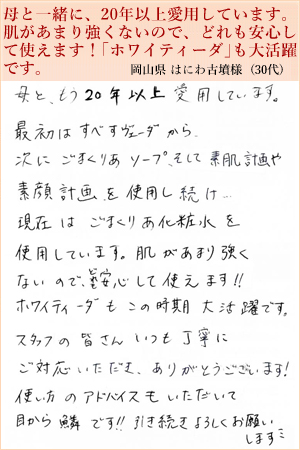 母と一緒に、20年以上愛用しています。
肌があまり強くないので、どれも安心し
て使えます!「ホワイティーダ」も大活躍
です。
岡山県 はにわ古墳様（30代）
母と、もう20年以上愛用しています。
最初はすべすべヴェーダから、
次に ごまくりあ ソープ、そして 素肌計画や
素顔計画を使用し続け…
現在は ごまくりあ化粧水を
使用しています。肌があまり強く
ないので、安心して使えます!!
ホワイティーダもこの時期大活躍です。
スタッフの皆さんいつも丁寧に
ご対応いただき、ありがとうございます!
使い方のアドバイスもいただいて
目から鱗です!!引き続きよろしくお願い
します